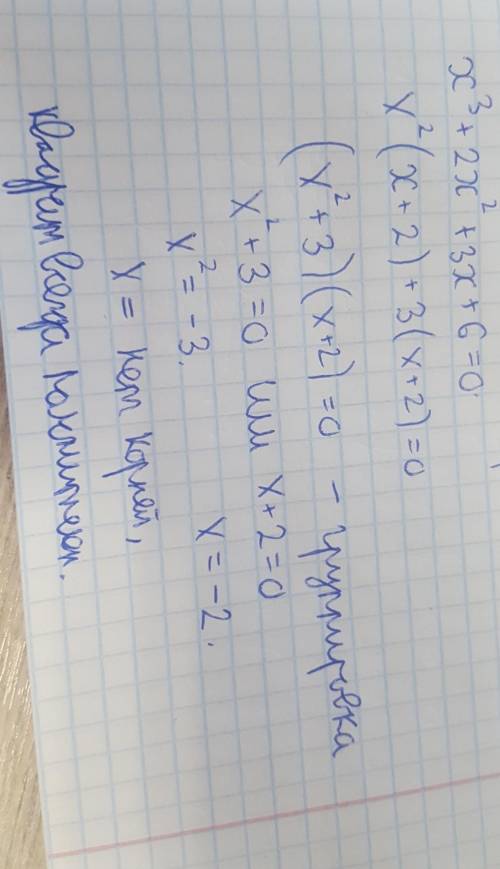 x³ + 2x² + 3x + 6 = 0.
x²(x + 2) + 3(x + 2) = 0
(x² + 3)(x + 2) = 0 – группировка
x² + 3 = 0 или x + 2 = 0
x² = -3. x = -2.
x = нет корней,
квадрат всегда